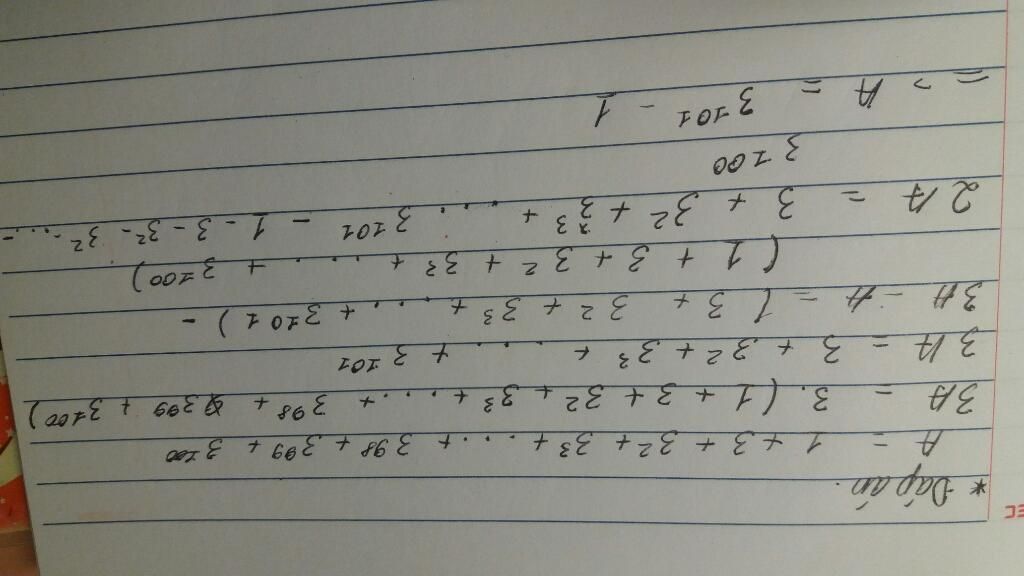 * Đáp án.
A = 1 + 3 + 3² + 3³ + ... + 3⁹⁸ + 3⁹⁹ + 3¹⁰⁰
3A = 3. (1 + 3 + 3² + 3³ + ... + 3⁹⁸ + 3⁹⁹ + 3¹⁰⁰)
3A = 3 + 3² + 3³ + ... + 3¹⁰¹
3A - A = (3 + 3² + 3³ + ... + 3¹⁰¹) -
(1 + 3 + 3² + 3³ + ... + 3¹⁰⁰)
2A = 3 + 3² + 3³ + ... 3¹⁰¹ - 1 - 3 - 3² - 3² - ... -
3¹⁰⁰
=> A = 3¹⁰¹ - 1